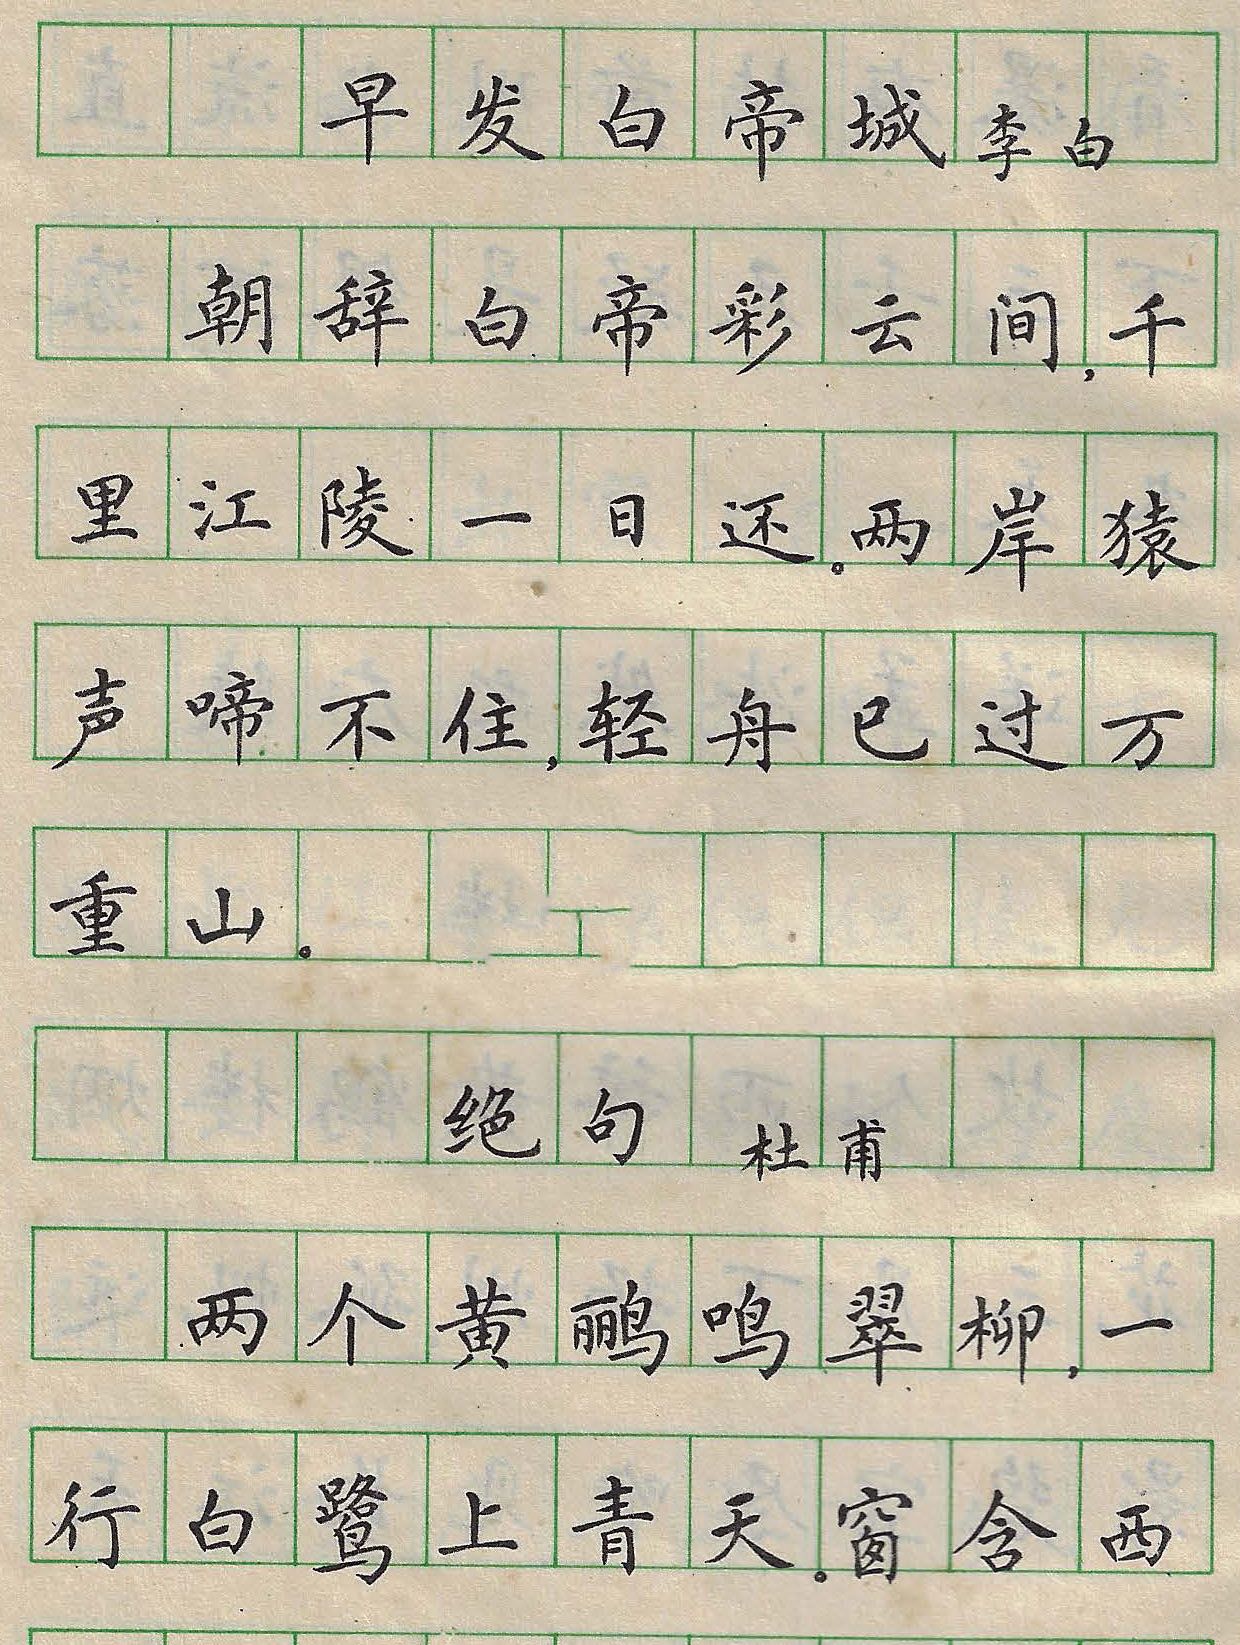 早发白帝城 李白
朝辞白帝彩云间,千
里江陵一日还。两岸猿
声啼不住,轻舟已过万
重山。
绝句 杜甫
两个黄鹂鸣翠柳,一
行白鹭上青天。窗含西